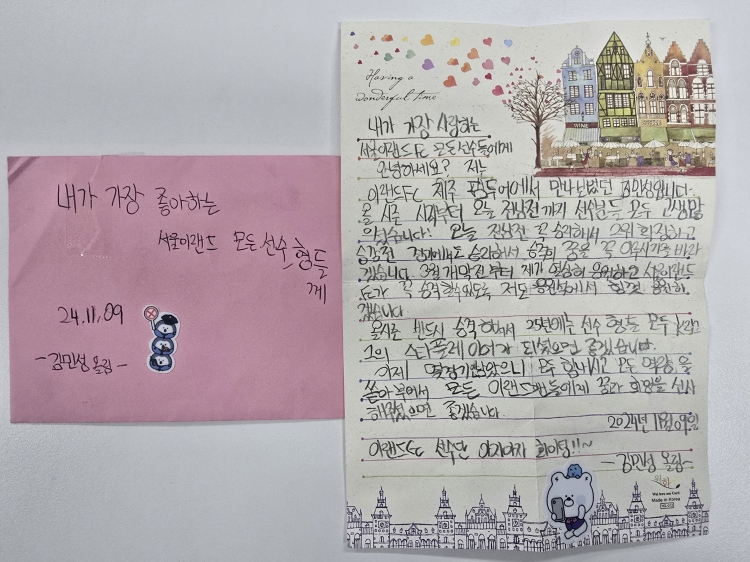 내가 가장 좋아하는
서울이랜드 모든 선수 형들
게
24.11.09
-김민성 올림-
Having a
wonderful time
WINE
내가 가장 사랑하는
서울이랜드FC 모든선수들에게
안녕하세요? 저는
이랜드FC 제주 팸투어에서 만나뵀던 김민성입니다.
올 시즌 시작부터 오늘 전남전 까지 선수분들 모두 고생많
으셨습니다! 오늘 전남전 꼭 승리해서 2위 확정하고
승강전 경기에도 승리해서 승격의 꿈을 꼭 이루시기를 바라
겠습니다. 3월 개막전부터 제가 열심히 응원하고 서울이랜드
FC가 꼭 승격할수있도록 저도 응원석에서 함께 응원하
겠습니다
올시즌 반드시 승격하셔서 25년에는 선수 형들 모두 K리그
1의 스타플레이어가 되셨으면 좋겠습니다.
이제 몇경기 남았으니 모두 힘내시고 모든 역량을
쏟아부어서 모든 이랜드팬들에게 꿈과 희망을 선사
해주셨으면 좋겠습니다
2024년 11월 09일
이랜드FC 선수단 아자아자 화이팅!!~
-김민성 올림-
Made in Korea